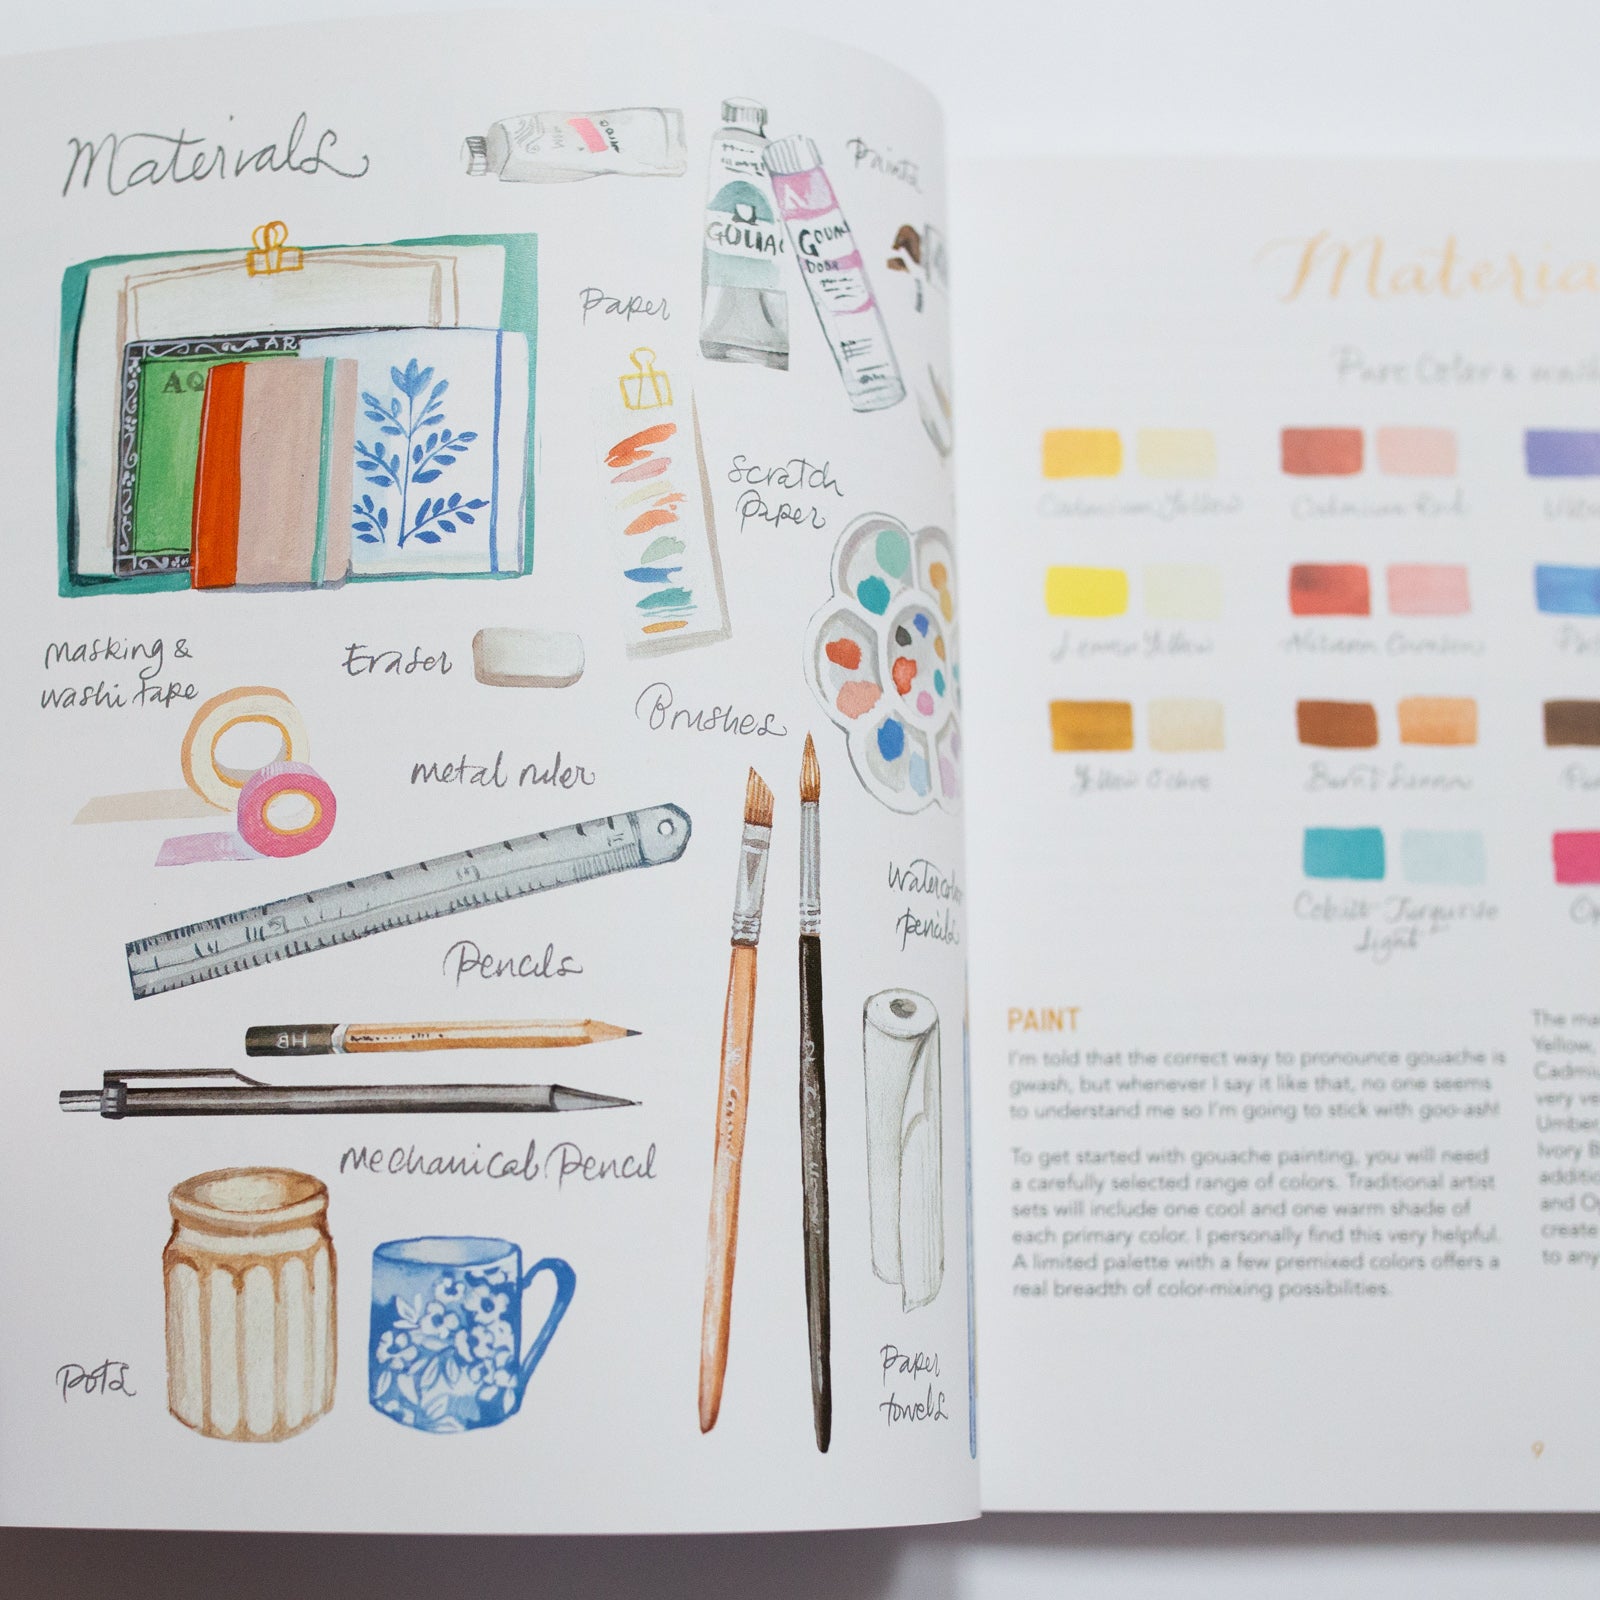 Materials
Paints
GOUAC
GOUA
Paper
AR
AQ
Scratch
Paper
masking &
washi tape
Eraser
Brushes
metal ruler
Pencils
HB
mechanical Pencil
Pots
watercolour
pencils
Paper
towels
Materia
Pure Color &
Cadmium Yellow
Cadmium Red
Lemon Yellow
Alizarin Crimson
Yellow Ochre
Burnt Sienna
Cobalt Turquoise
Light
Op
PAINT
I'm told that the correct way to pronounce gouache is
gwash, but whenever I say it like that, no one seems
to understand me so I'm going to stick with goo-ash!
To get started with gouache painting, you will need
a carefully selected range of colors. Traditional artist
sets will include one cool and one warm shade of
each primary color. I personally find this very helpful.
A limited palette with a few premixed colors offers a
real breadth of color-mixing possibilities.
The ma
Yellow,
Cadmiu
very ve
Umber,
Ivory B
additio
and Op
create
to any
9